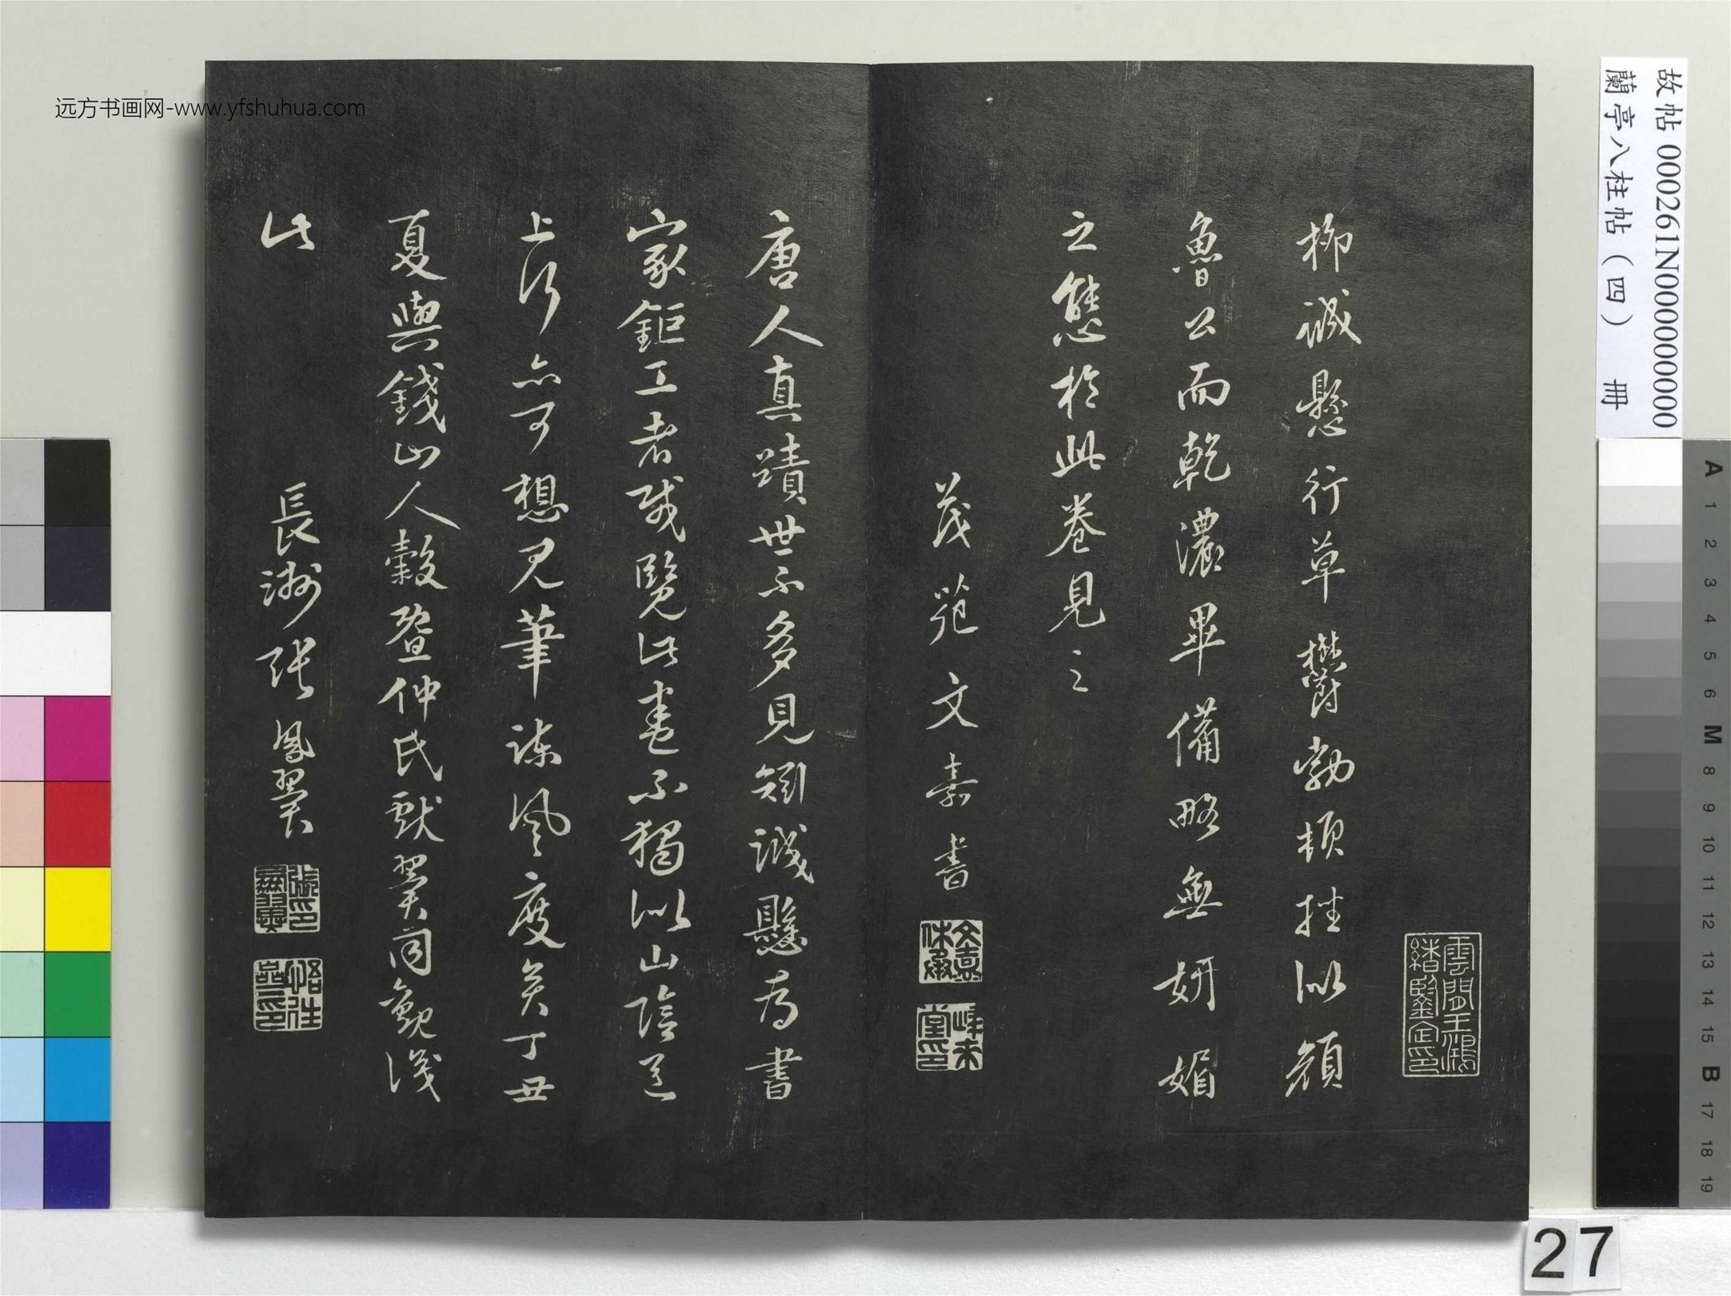 故帖 000261N000000000
蘭亭八柱帖（四） 冊
远方书画网-www.yfshuhua.com
雲間王鴻緒鑒定印
柳誠懸行草欝勃頓挫似顏
魯公而乾濃畢備略無妍媚
之態於此卷見之
茂苑文嘉書
文嘉休承
唐人真蹟世不多見矧誠懸為書
家鉅工者哉覽此書不獨似山陰道
上行亦可想見筆諫風度矣丁丑
夏與錢山人穀暨仲氏獻翼同觀識
此
長洲張鳳翼
A
1
2
3
4
5
6
M
8
9
10
11
12
13
14
15
B
17
18
19
27